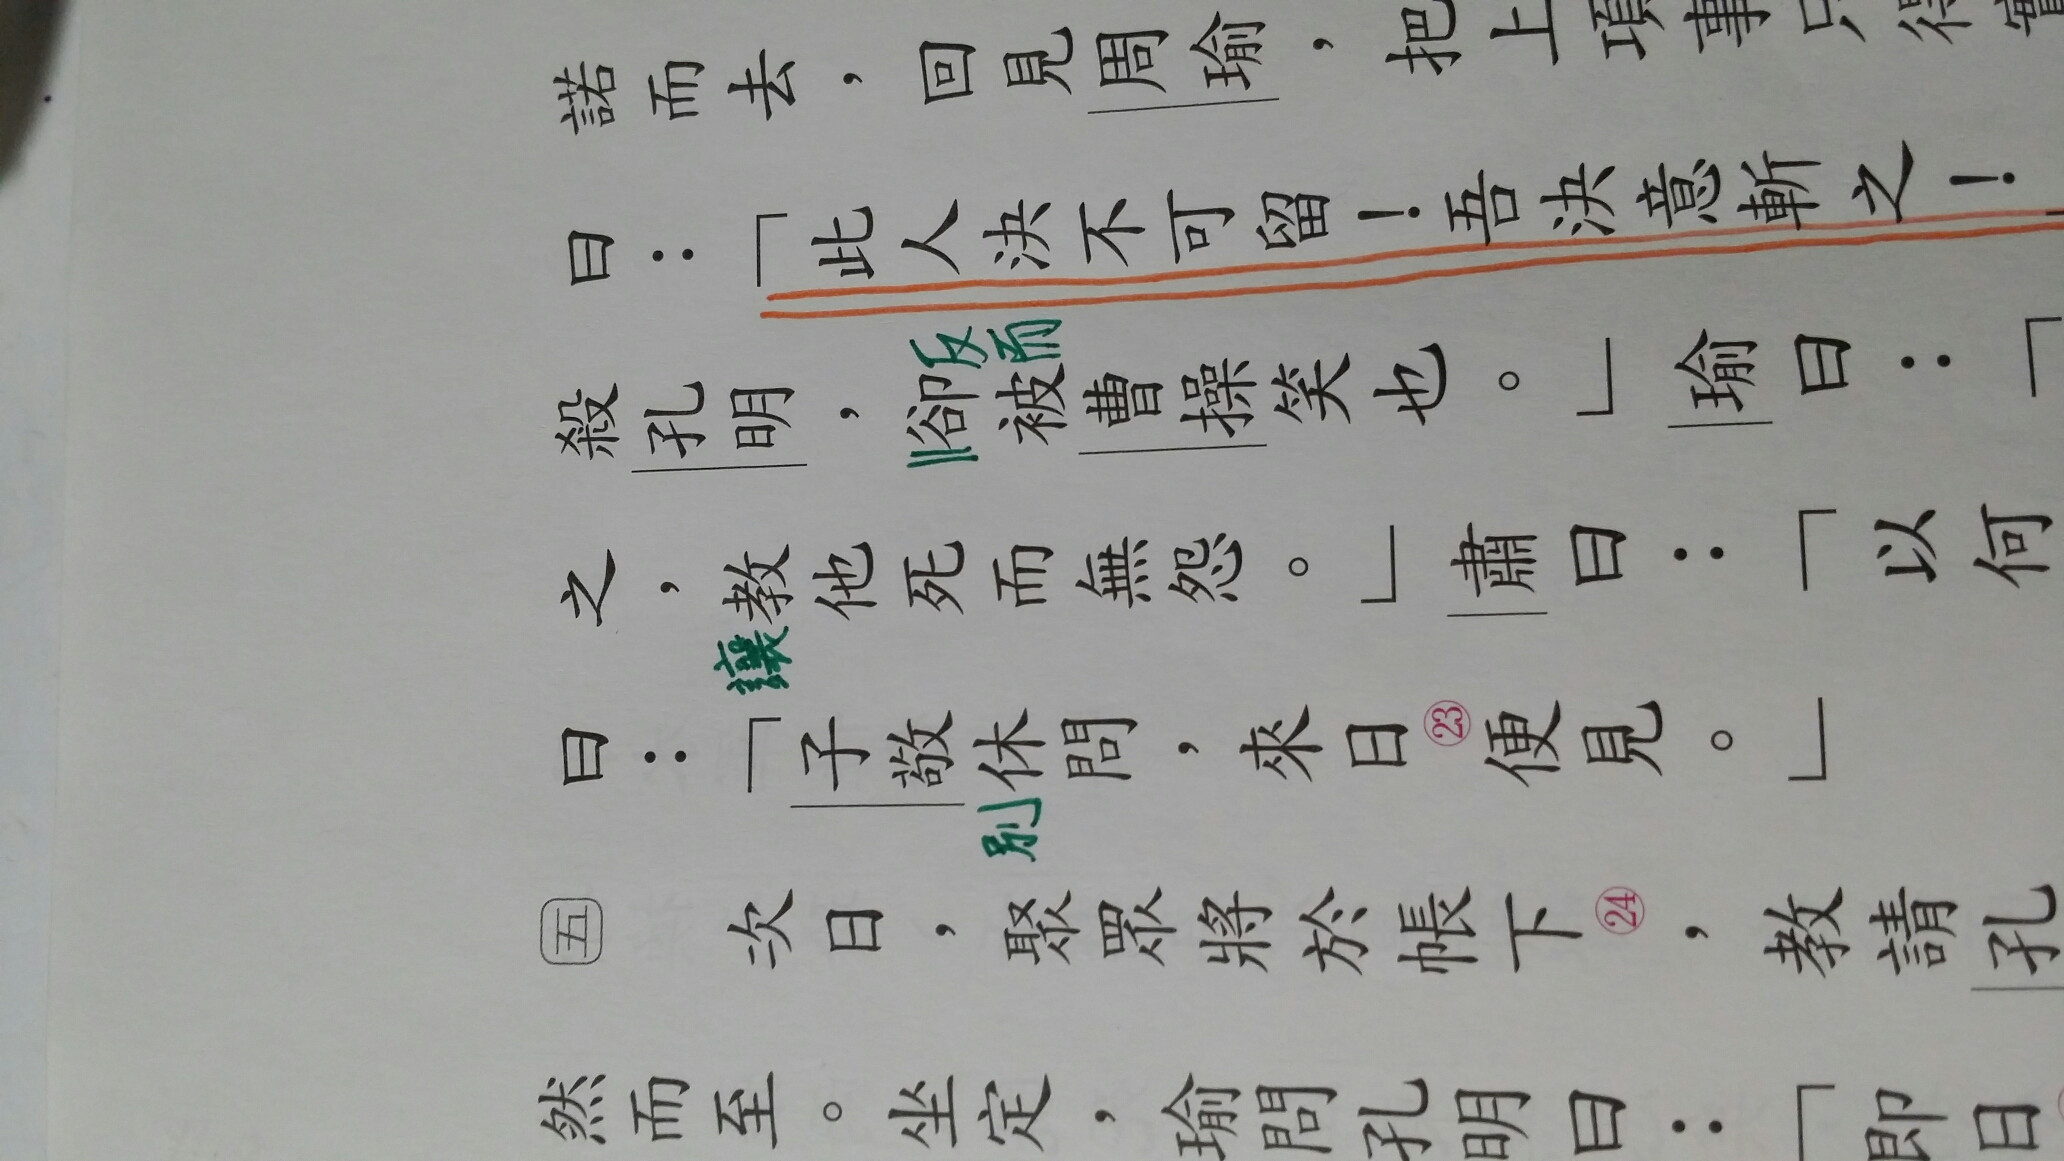 諾而去，回見周瑜，把上項事只得實
曰：「此人決不可留！吾決意斬之！
殺孔明，卻被曹操笑也。」瑜曰：「
反而
之，教他死而無怨。」肅曰：「以何
讓
曰：「子敬休問，來日㉓便見。」
別
五 次日，聚眾將於帳下㉔，教請孔
然而至。坐定，瑜問孔明曰：「即日